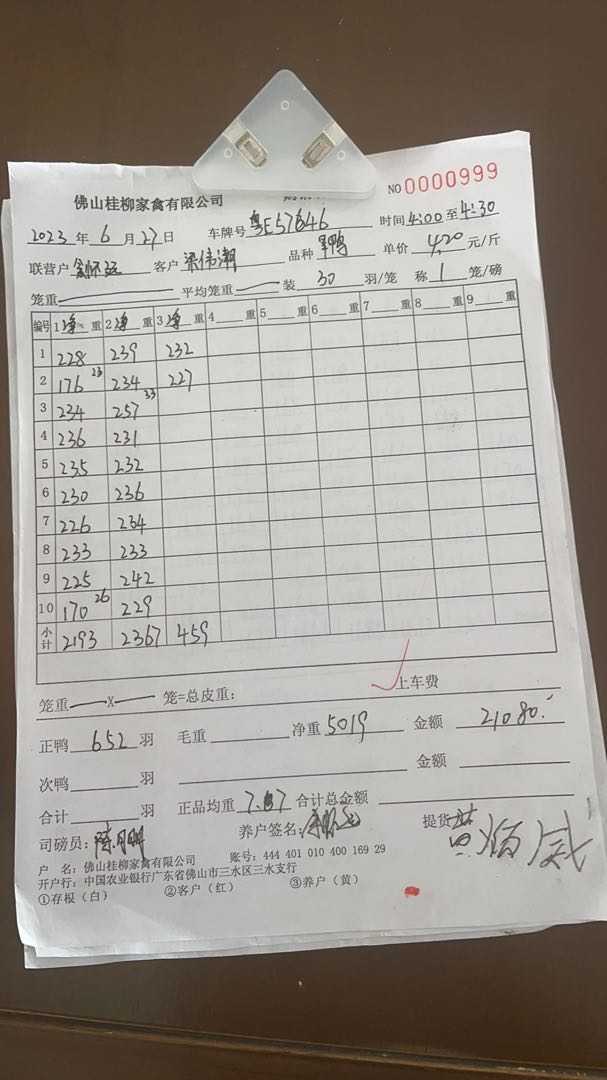 佛山桂柳家禽有限公司
NO 0000999
2023 年 6 月 27 日 车牌号 粤E57646 时间 4:00 至 4:30
联营户 客户 梁伟潮 品种 鸭 单价 4.20 元/斤
笼重 平均笼重 装 30 羽/笼 称 1 笼/磅
编号 1 净 重 2 净 重 3 净 重 4 重 5 重 6 重 7 重 8 重 9 重
1 228 239 232
2 176 23 234 227
3 234 257 33
4 236 231
5 235 232
6 230 236
7 226 234
8 233 233
9 225 242
10 170 26 229
小计 2193 2367 459
笼重 X 笼=总皮重: 上车费
正鸭 652 羽 毛重 净重 5019 金额 21080.
次鸭 羽 金额
合计 羽 正品均重 7.67 合计总金额
司磅员: 养户签名: 提货
户 名: 佛山桂柳家禽有限公司 账号: 444 401 010 400 169 29
开户行: 中国农业银行广东省佛山市三水区三水支行
①存根（白） ②客户（红） ③养户（黄）